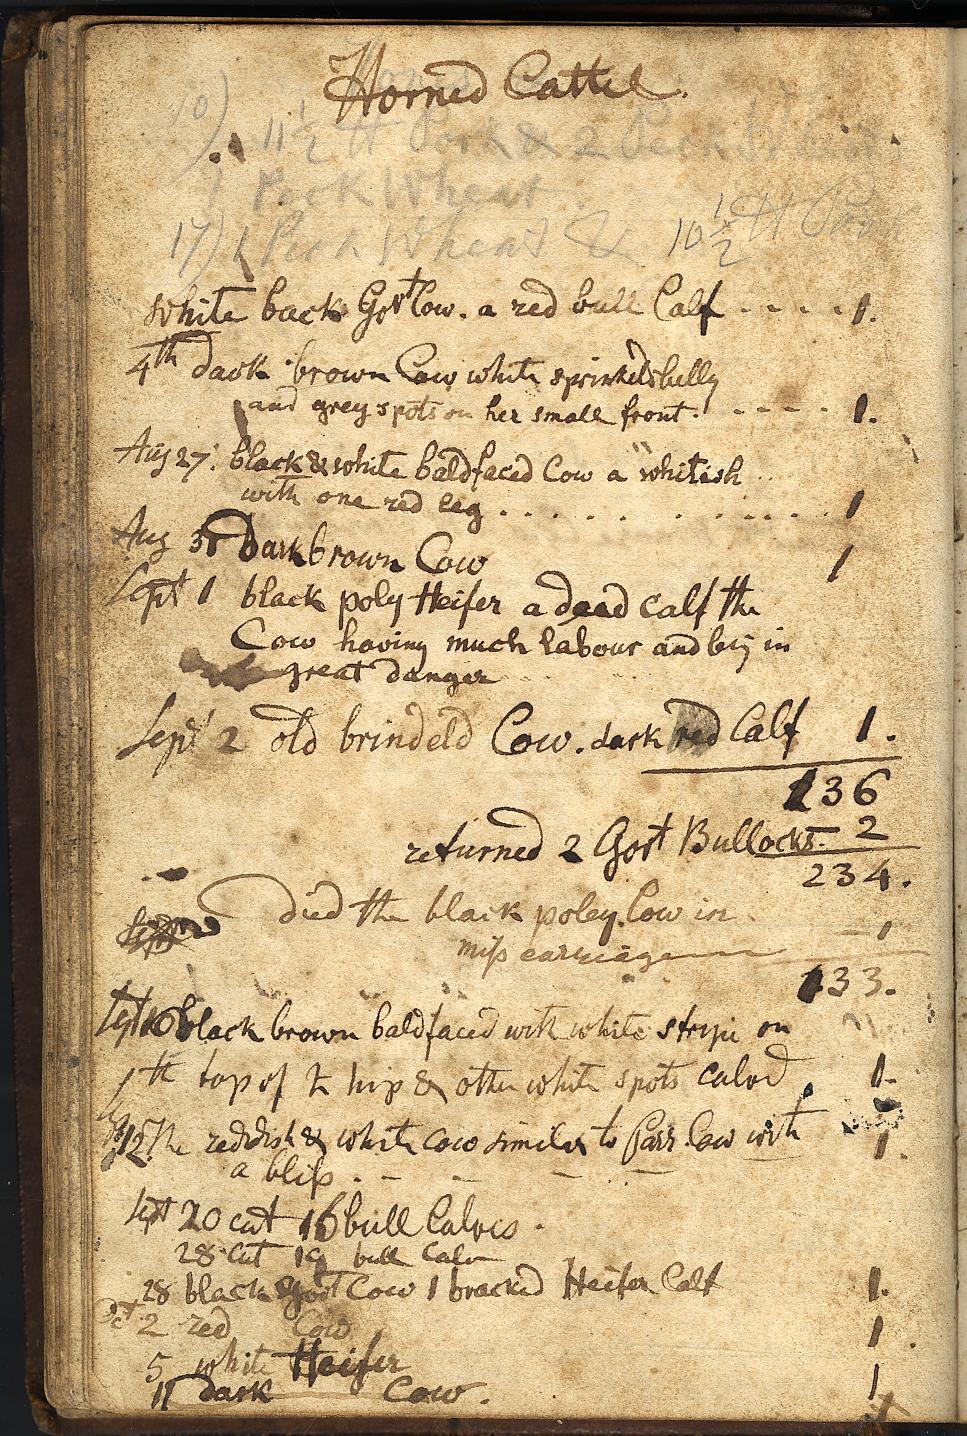 Horned Cattel.
10) 11 1/2 ℔ Pork & 2 Peck Wheat
Peck Wheat
17) 1 Peck Wheat & 10 1/2 ℔ Pork
white back Govt Cow. a red bull Calf - - - - 1.
4th dark brown Cow white sprinkeld belly
and grey spots on her small front. - - - - 1.
Aug 27. black & white baldfaced Cow a whitish
with one red leg . . . . . . . . . . 1
Aug 31 Dark brown Cow 1
Sept 1 black poly Heifer a dead calf the
Cow having much labour and being in
great danger
Sept 2 old brindeld Cow. dark red Calf 1.
136
returned 2 Govt Bullocks - 2
234.
died the black poley Cow in
miss carriage - 1
133.
Sept 10 black brown baldfaced with white stripe on
th top of hip & other white spots calvd 1.
12 The reddish & white cow similar to Parr Cow with 1.
a bliss . - - - -
Sept 20 cut 16 bull Calves.
28 cut 19 bull Calv
28 black Govt Cow 1 bracked Heifer Calf 1.
Oct 2 red Cow 1
5 white Heifer 1
11 dark Cow.